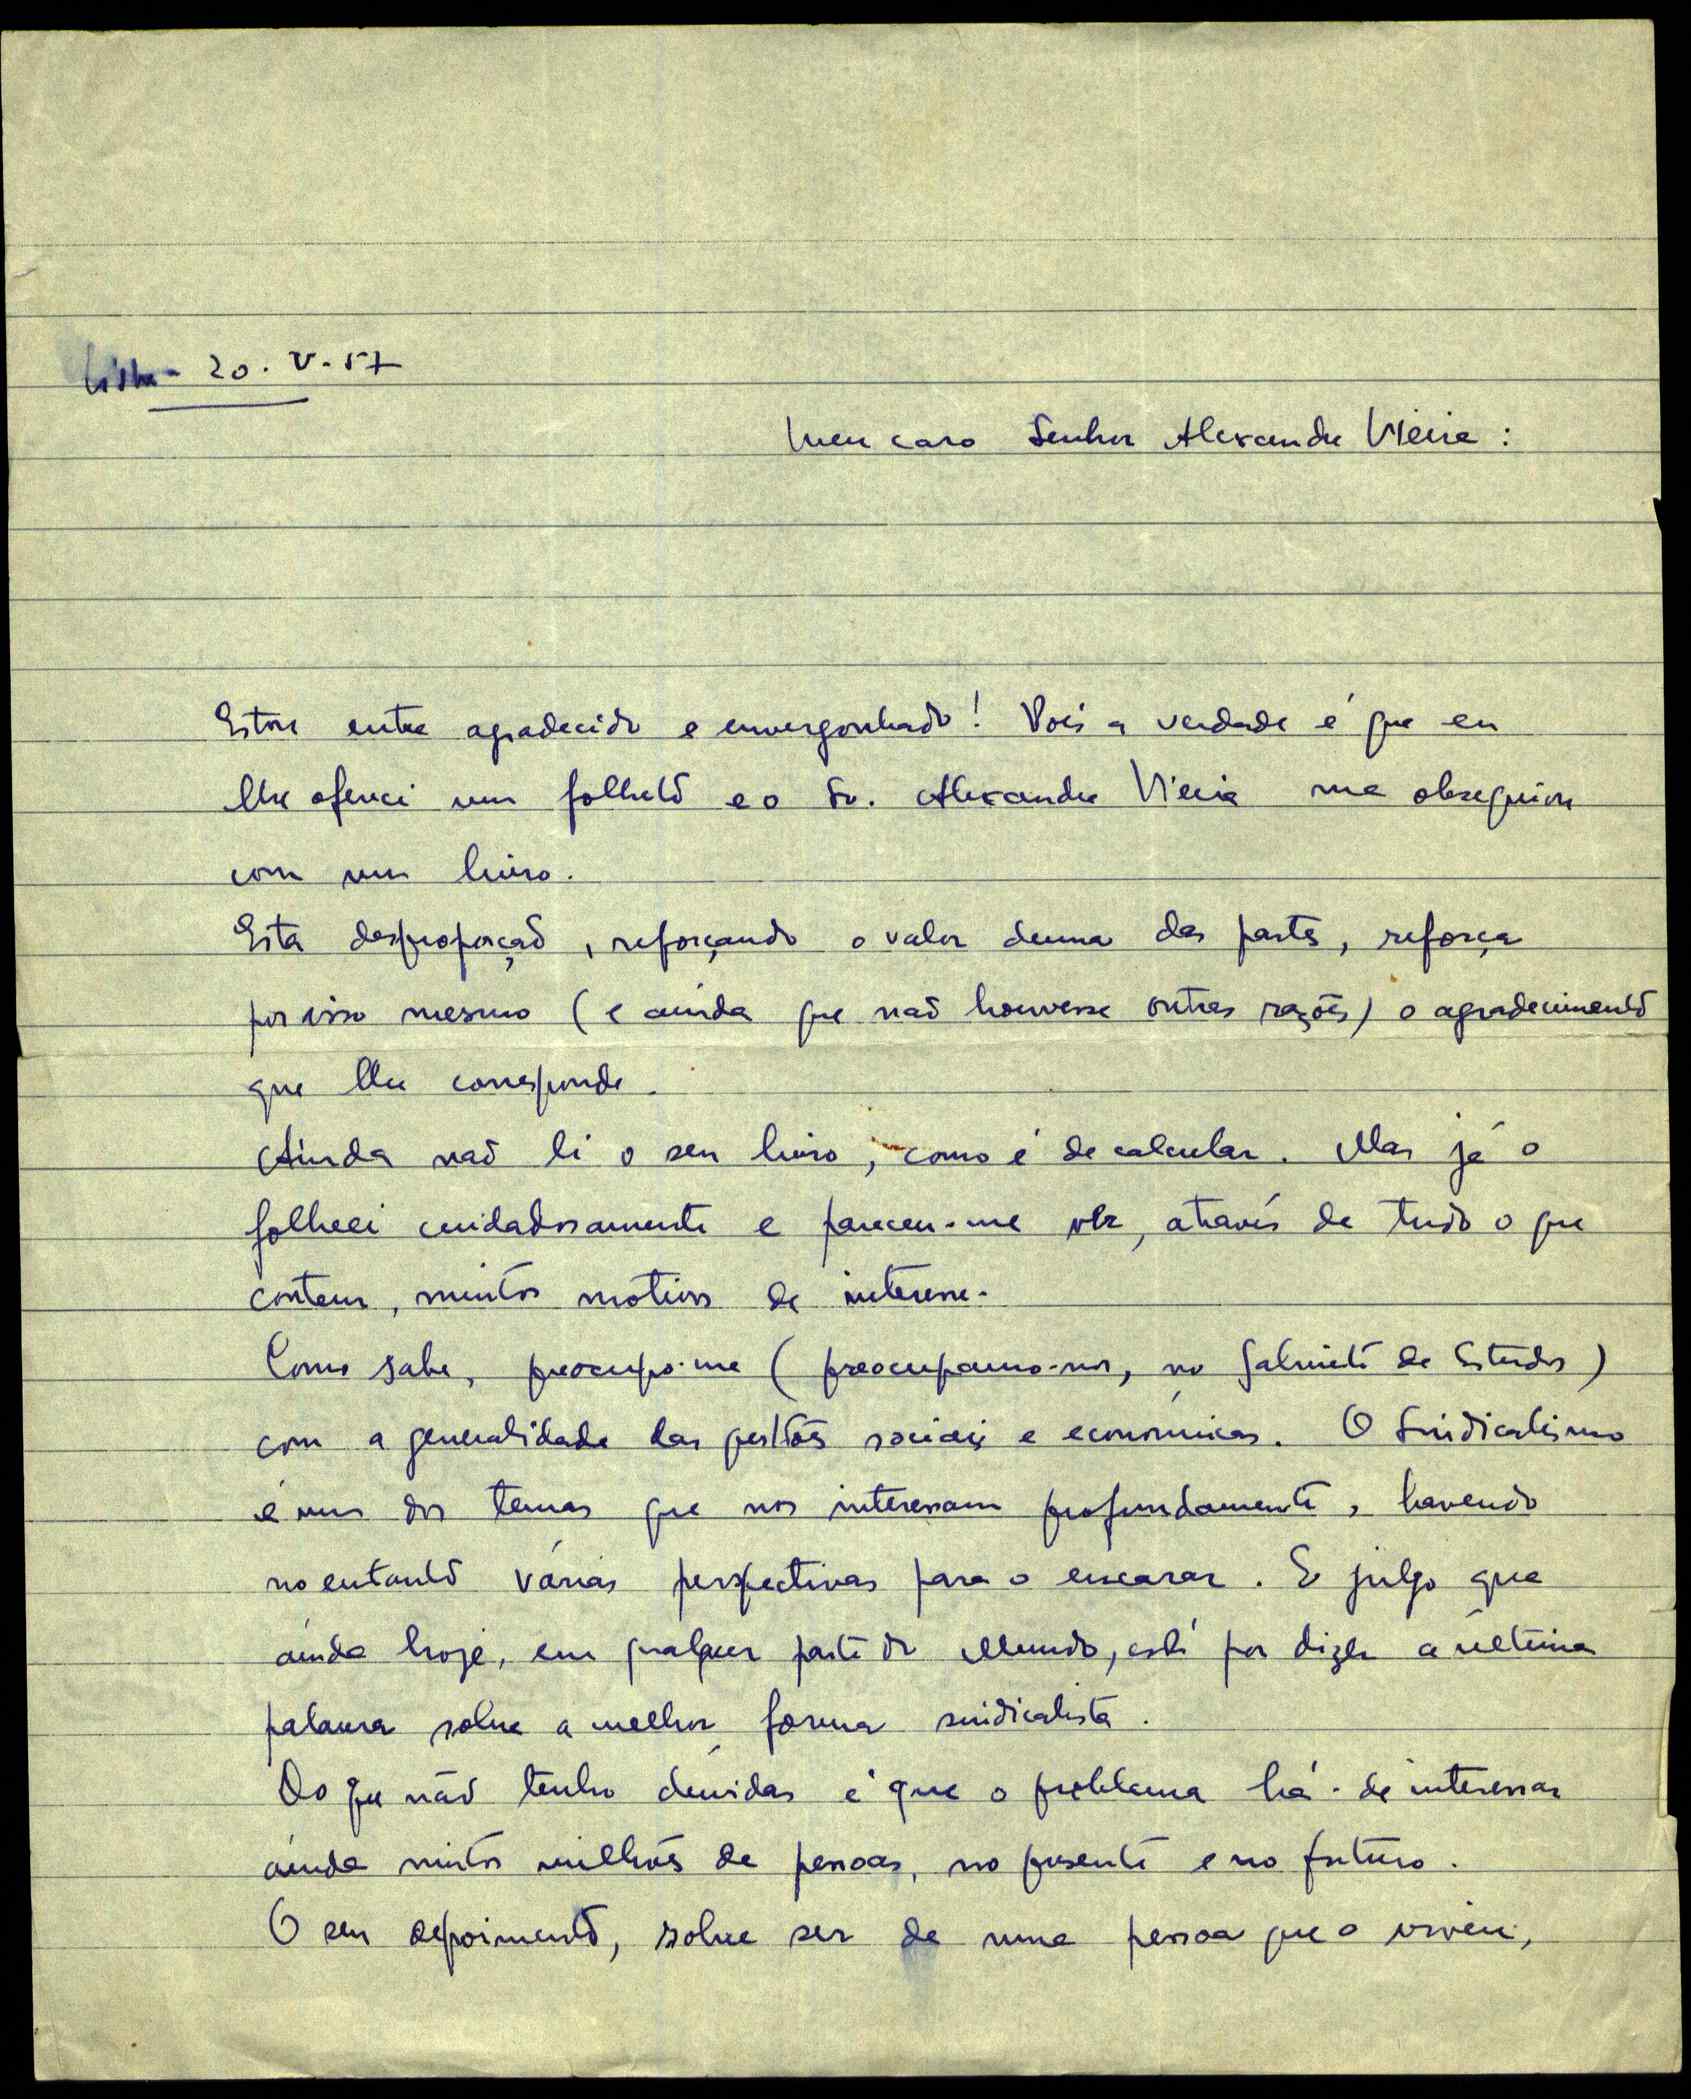 Lisboa - 20. V. 57
Meu caro Senhor Alexandre Vieira :
Estou entre agradecido e envergonhado! Pois a verdade é que eu
lhe ofereci um folheto e o Sr. Alexandre Vieira me obsequiou
com um livro.
Esta desproporção, reforçando o valor duma das partes, reforça
por isso mesmo (e ainda que não houvesse outras razões) o agradecimento
que lhe corresponde.
Ainda não li o seu livro, como é de calcular. Mas já o
folheei cuidadosamente e pareceu-me ver, através de tudo o que
contem, muitos motivos de interesse.
Como sabe, preocupo-me (preocupamo-nos, no Gabinete de Estudos)
com a generalidade das questões sociais e económicas. O Sindicalismo
é um dos temas que nos interessam profundamente, havendo
no entanto várias perspectivas para o encarar. E julgo que
ainda hoje, em qualquer parte do Mundo, está por dizer a última
palavra sobre a melhor forma sindicalista.
Do que não tenho dúvidas é que o problema há-de interessar
ainda muitos milhões de pessoas, no presente e no futuro.
O seu depoimento, sobre ser de uma pessoa que o viveu,